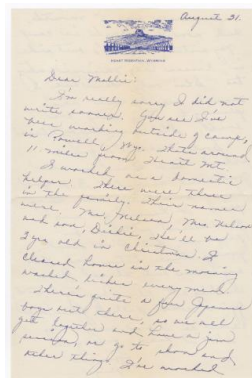 August 31.
HEART MOUNTAIN, WYOMING
Dear Mollie:
I'm really sorry I did not
write sooner. You see I've
been working outside of camp,
in Powell, Wyo. That's around
11 miles from Heart Mt.
I worked as a domestic
helper. There were three
in the family. Their names
were Mr. Nelson, Mrs. Nelson
and son, Dickie, He'll be
2 yrs old in Christmas. I
cleaned house in the morning
washed dishes every meal
There's quite a few Japanese
boys out there, so we all
get together and have a fun
session, or go to show and
other things. I've worked